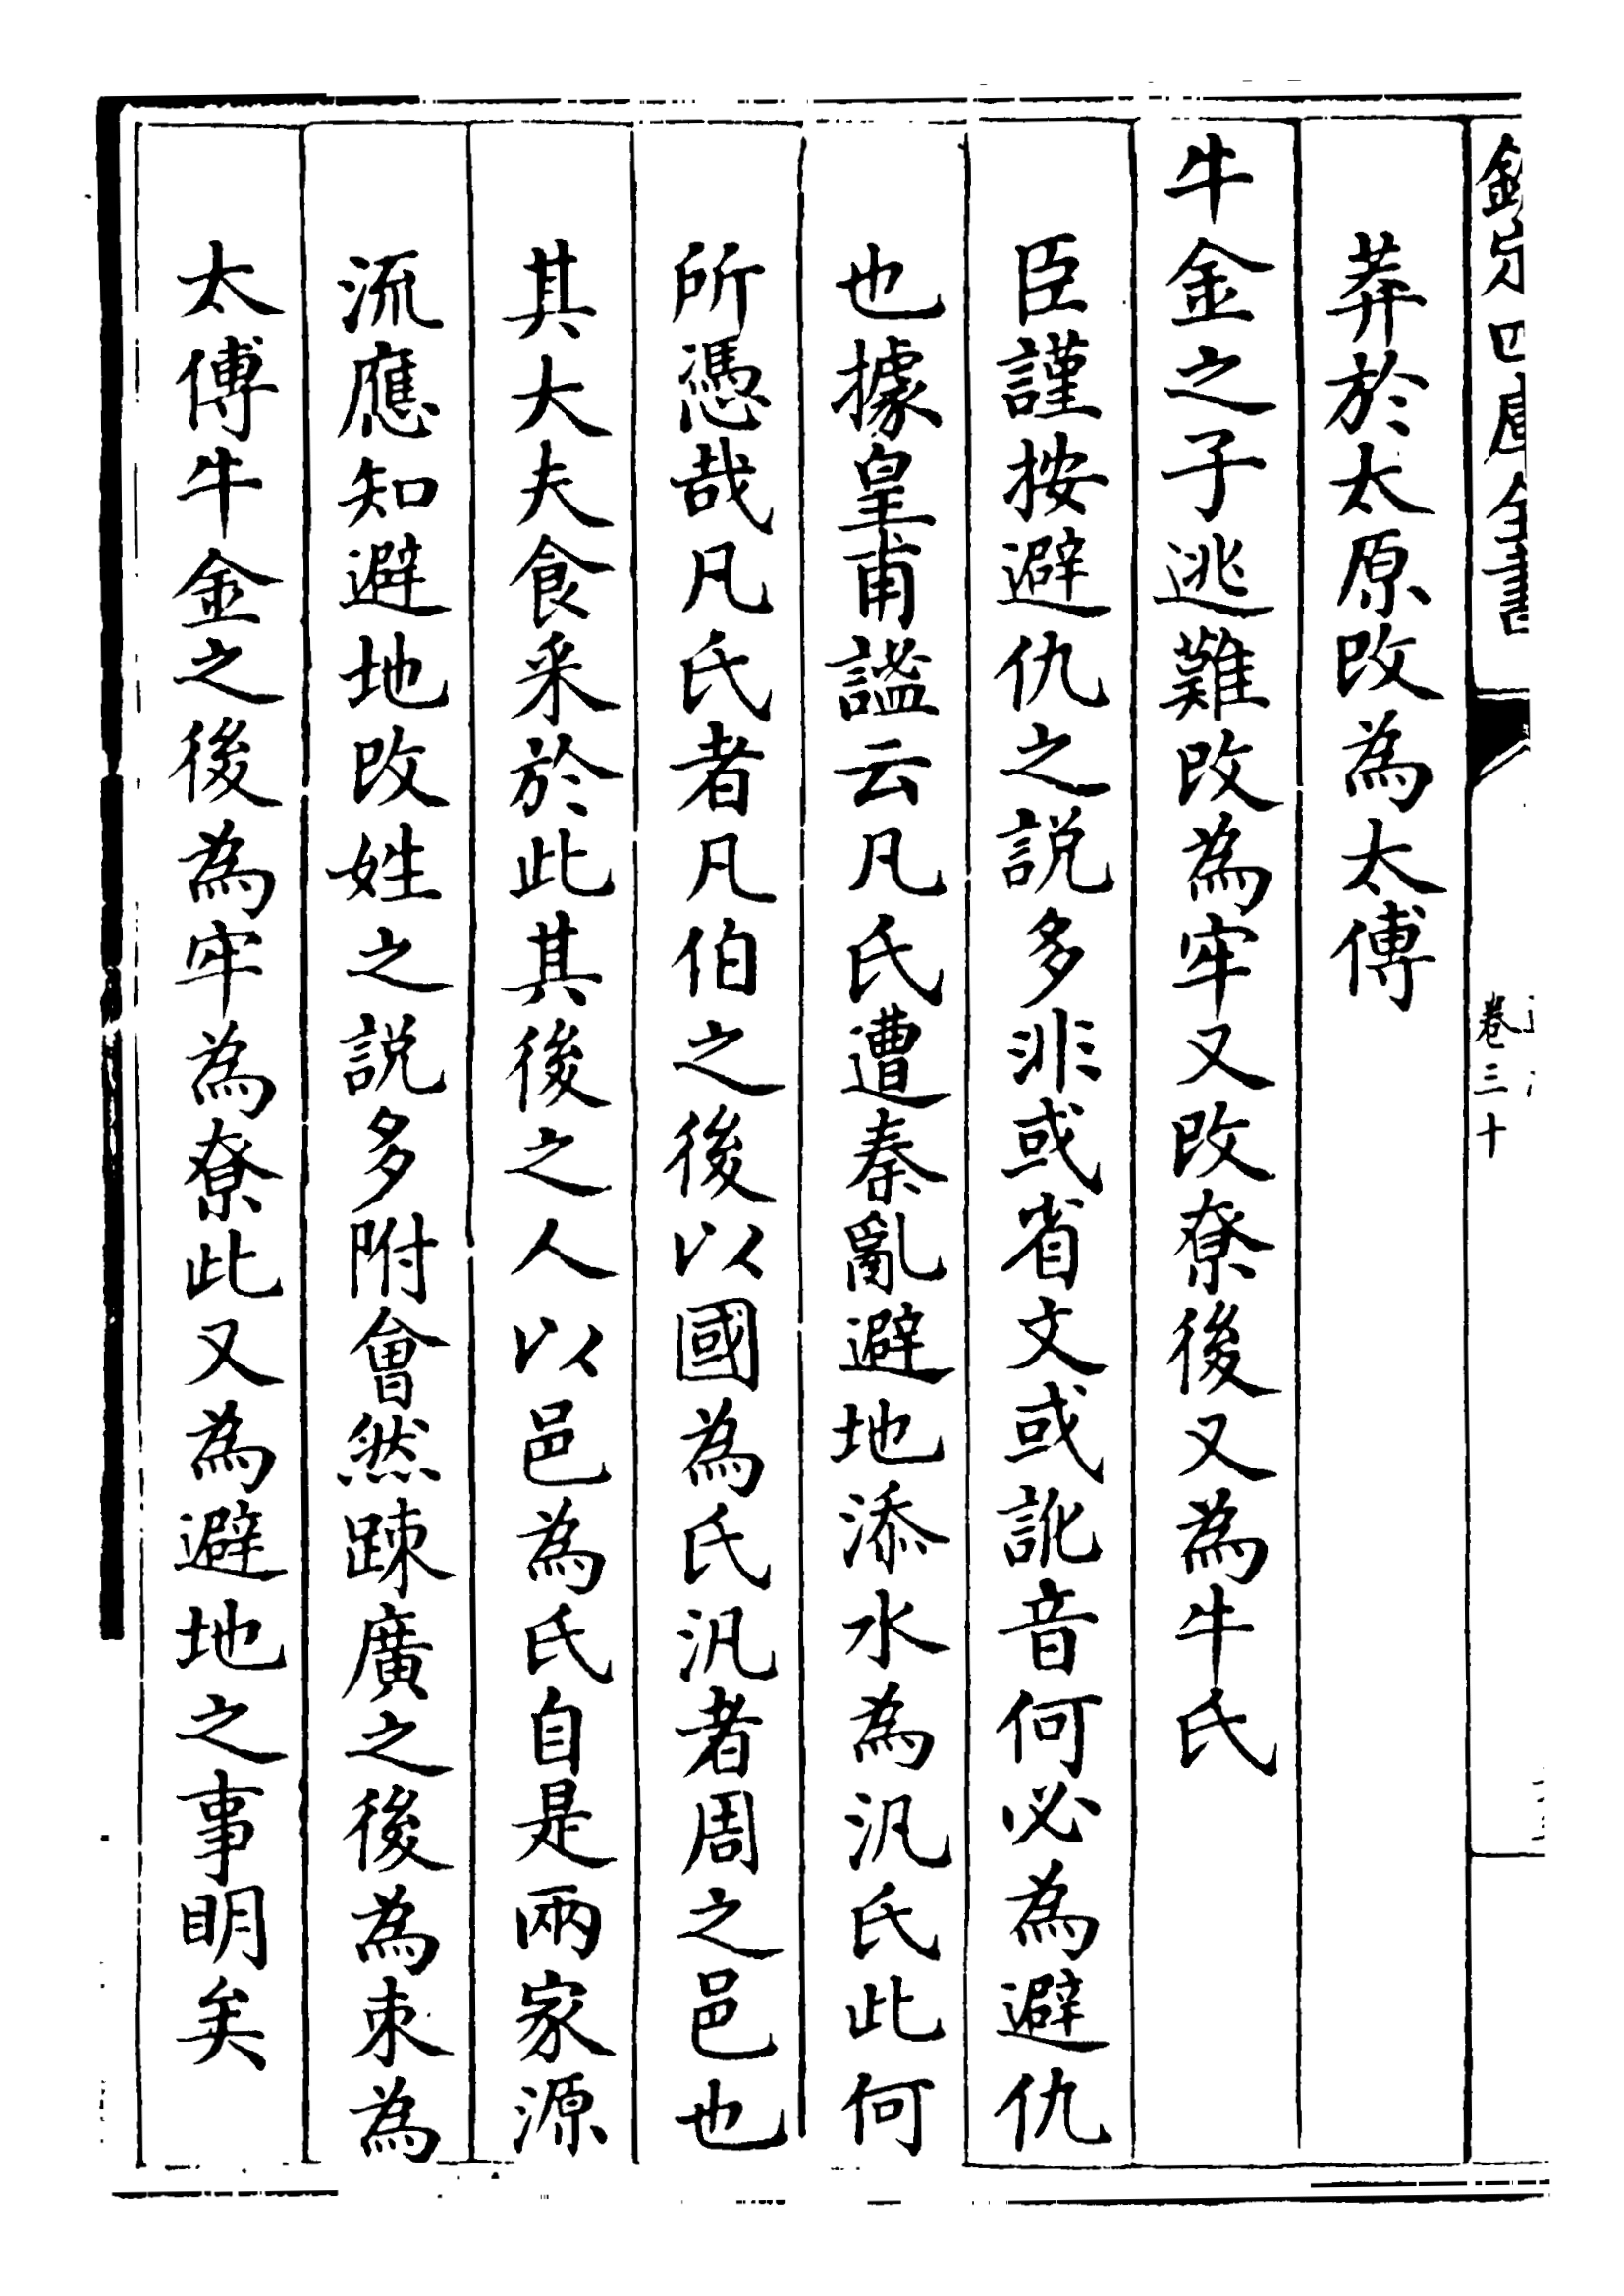 欽定四庫全書
卷三十
莽於太原改為太傅
牛金之子逃難改為牢又改尞後又為牛氏
臣謹按避仇之説多非或省文或訛音何必為避仇
也據皇甫謐云凡氏遭秦亂避地添水為汎氏此何
所憑哉凡氏者凡伯之後以國為氏汎者周之邑也
其大夫食采於此其後之人以邑為氏自是兩家源
流應知避地改姓之説多附會然踈廣之後為束為
太傅牛金之後為牢為尞此又為避地之事明矣